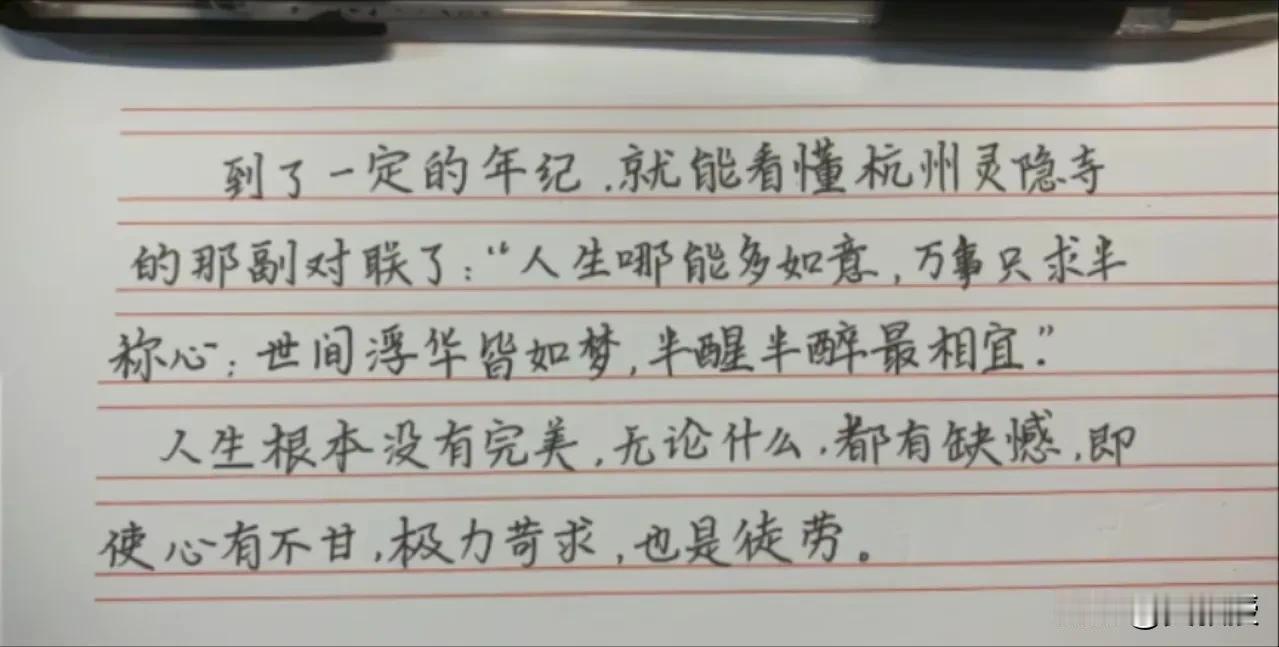 到了一定的年纪，就能看懂杭州灵隐寺
的那副对联了：“人生哪能多如意，万事只求半
称心；世间浮华皆如梦，半醒半醉最相宜.”
人生根本没有完美，无论什么，都有缺憾，即
使心有不甘，极力苛求，也是徒劳。